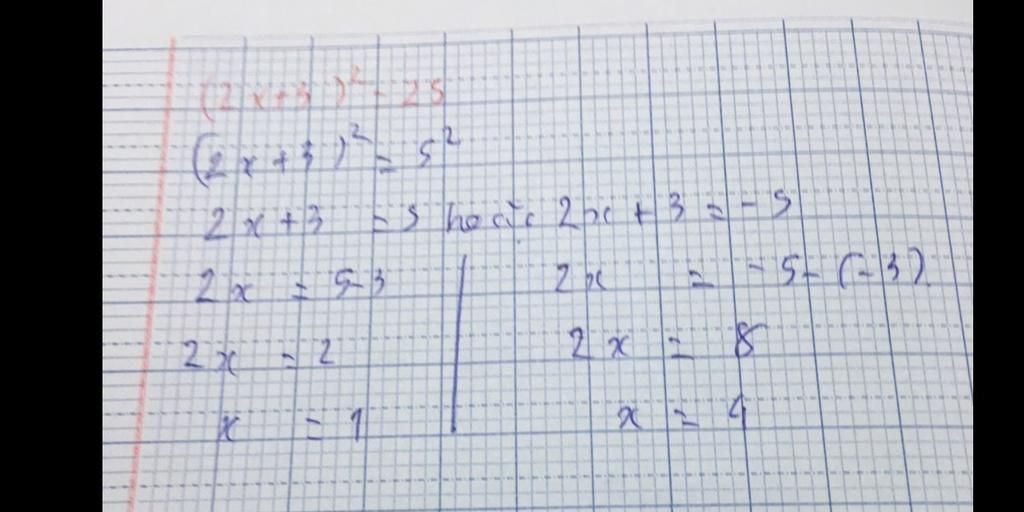 (2x+3)² = 25
(2x+3)² = 5²
2x+3 = 5 hoặc 2x+3 = -5
2x = 5-3 2x = -5-(-3)
2x = 2 2x = 8
x = 1 x = 4